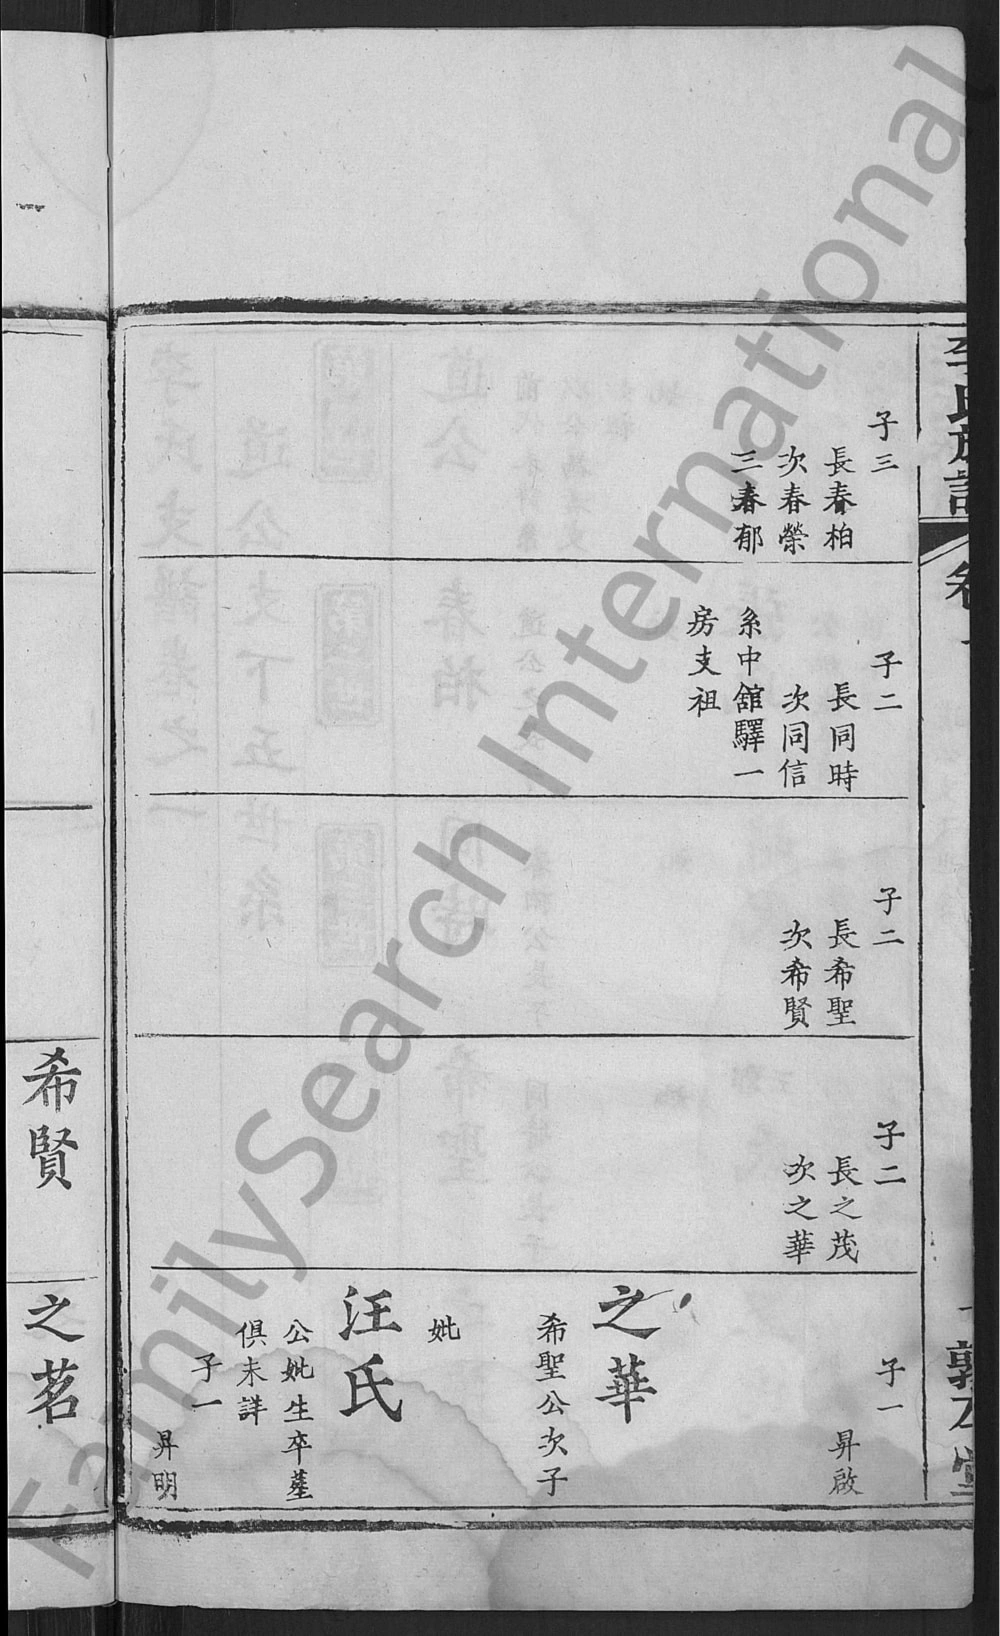 李氏族譜
卷一
敦本堂
子三
長春柏
次春榮
三春郁
子二
長同時
次同信
系中舘驛一
房支祖
子二
長希聖
次希賢
子二
長之茂
次之華
子一
昇啟
之華
希聖公次子
妣
汪氏
公妣生卒塟
俱未詳
子一
昇明
希賢
之茗
FamilySearch International